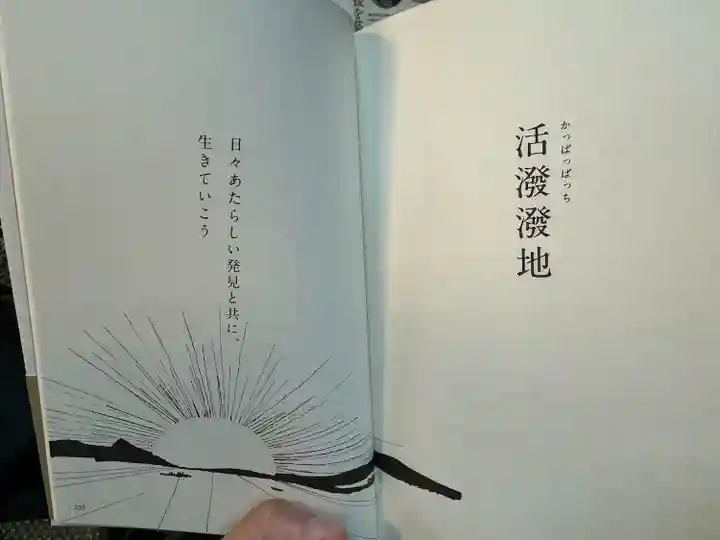 かっぱつぱっち
活潑潑地
日々あたらしい発見と共に、
生きていこう